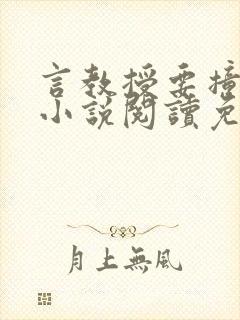 言教授要撞
小說閱讀免
月上無風